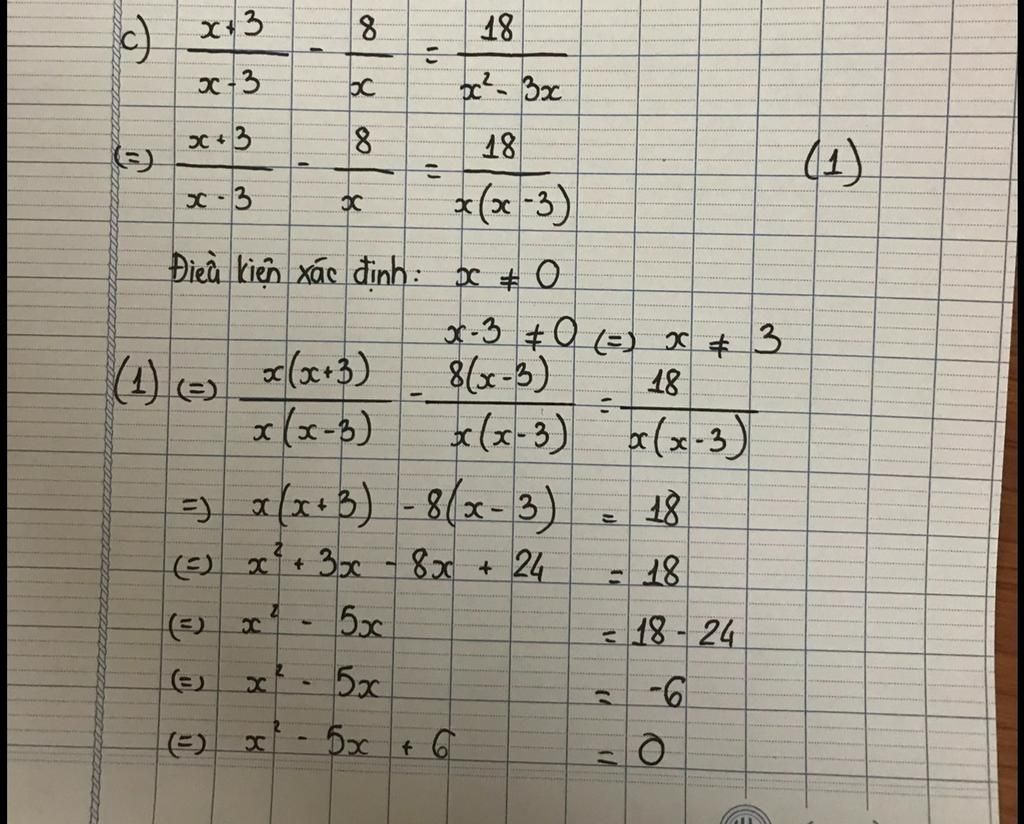 c) \frac{x+3}{x-3} - \frac{8}{x} = \frac{18}{x² - 3x}
(=) \frac{x+3}{x-3} - \frac{8}{x} = \frac{18}{x(x-3)} (1)
Điều kiện xác định: x ≠ 0
x-3 ≠ 0 (=) x ≠ 3
(1) (=) \frac{x(x+3)}{x(x-3)} - \frac{8(x-3)}{x(x-3)} = \frac{18}{x(x-3)}
=) x(x+3) - 8(x-3) = 18
(=) x² + 3x - 8x + 24 = 18
(=) x² - 5x = 18 - 24
(=) x² - 5x = -6
(=) x² - 5x + 6 = 0